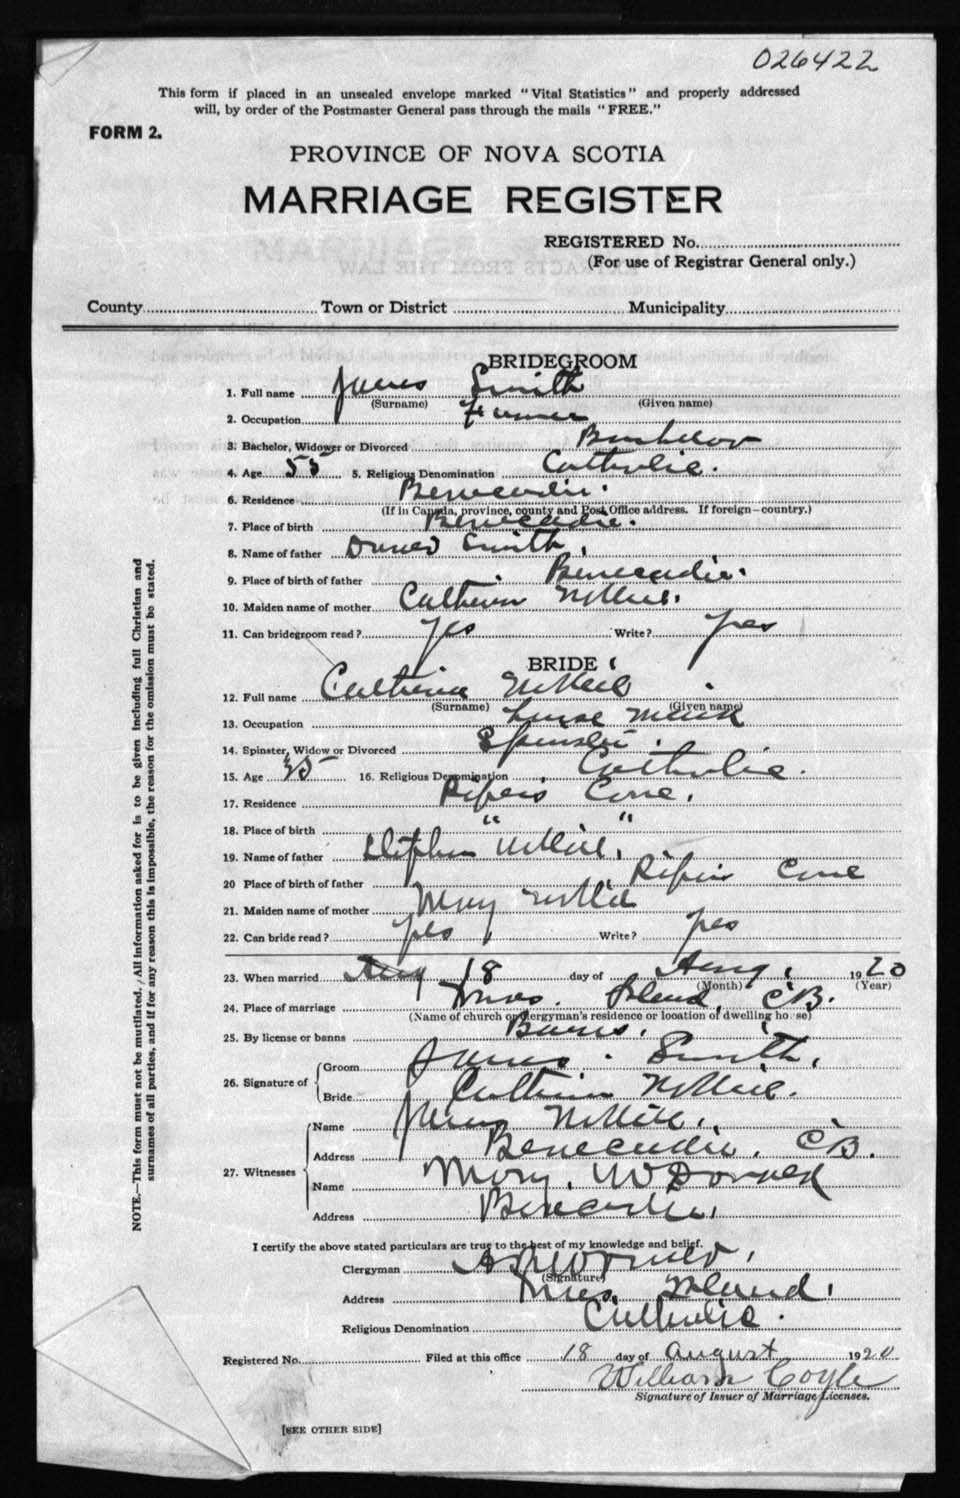 026422
This form if placed in an unsealed envelope marked "Vital Statistics" and properly addressed
will, by order of the Postmaster General pass through the mails "FREE."
FORM 2.
PROVINCE OF NOVA SCOTIA
MARRIAGE REGISTER
REGISTERED No.
(For use of Registrar General only.)
County Town or District Municipality
BRIDEGROOM
1. Full name James Smith
(Surname) (Given name)
2. Occupation Farmer
3. Bachelor, Widower or Divorced Bachelor
4. Age 55 5. Religious Denomination Catholic.
6. Residence Benecadie.
(If in Canada, province, county and Post Office address. If foreign—country.)
7. Place of birth Benecadie.
8. Name of father Smith,
9. Place of birth of father Benecadie.
10. Maiden name of mother Catherin McNeil.
11. Can bridegroom read? Yes Write? yes
BRIDE
12. Full name Catherine McNeil
(Surname) (Given name)
13. Occupation House
14. Spinster, Widow or Divorced Spinster.
15. Age 35 16. Religious Denomination Catholic.
17. Residence Pipers Cove.
18. Place of birth " "
19. Name of father Stephen McNeil,
20 Place of birth of father Pipers Cove
21. Maiden name of mother Mary McNeil
22. Can bride read? yes Write? yes
23. When married Aug 18 day of Aug. 1920
(Month) (Year)
24. Place of marriage Island, C B.
(Name of church or clergyman's residence or location of dwelling house)
25. By license or banns Banns.
26. Signature of
Groom James Smith.
Bride Catherin McNeil.
27. Witnesses
Name McNeil.
Address Benecadie, C B.
Name Mary McDonald
Address Benecadie.
I certify the above stated particulars are true to the best of my knowledge and belief.
Clergyman
(Signature)
Address Island.
Religious Denomination Catholic.
Registered No. Filed at this office 18 day of August 1920
William Coyle
Signature of Issuer of Marriage Licenses.
[SEE OTHER SIDE]
NOTE.—This form must not be mutilated. All information asked for is to be given including full Christian and
surnames of all parties, and if for any reason this is impossible, the reason for the omission must be stated.